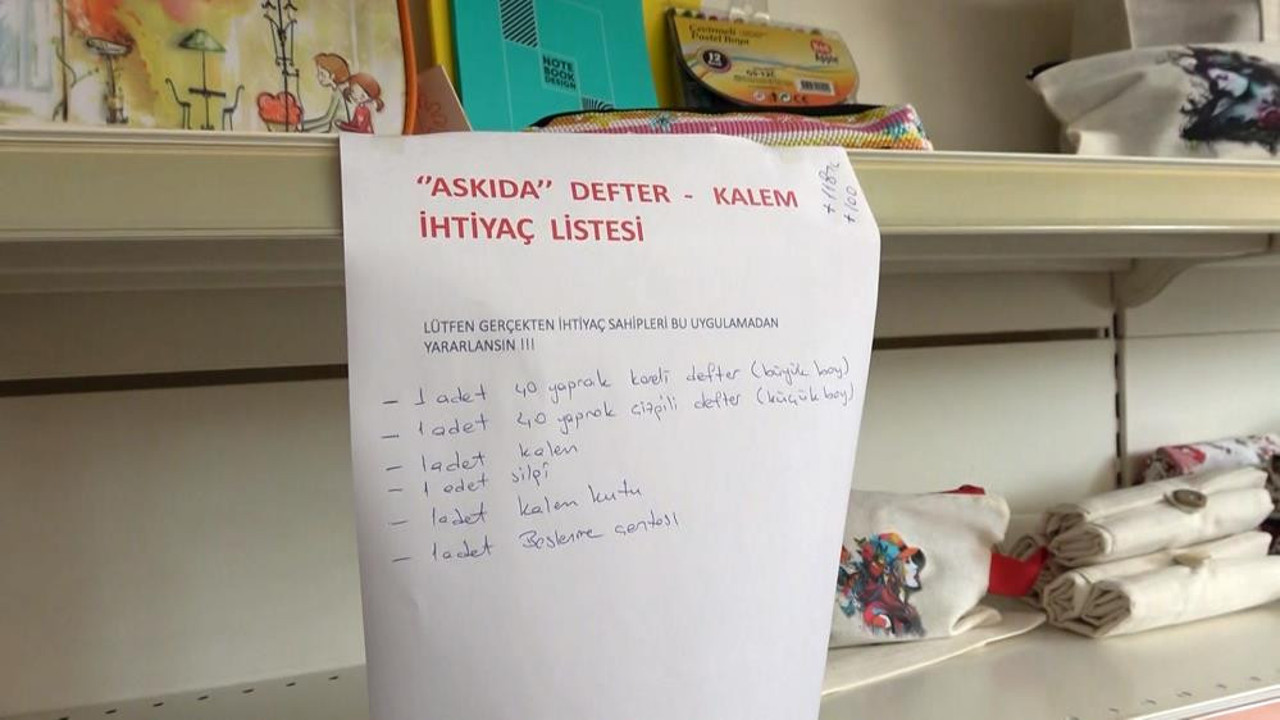 NOTE
BOOK
DESIGN
Pastel Boya
12
Red
Apple
"ASKIDA" DEFTER - KALEM
İHTİYAÇ LİSTESİ
+118
+100
LÜTFEN GERÇEKTEN İHTİYAÇ SAHİPLERİ BU UYGULAMADAN
YARARLANSIN !!!
- 1 adet 40 yaprak kareli defter (büyük boy)
- 1 adet 40 yaprak çizgili defter (küçük boy)
- 1 adet kalem
- 1 adet silgi
- 1 adet kalem kutu
- 1 adet Beslenme çantası